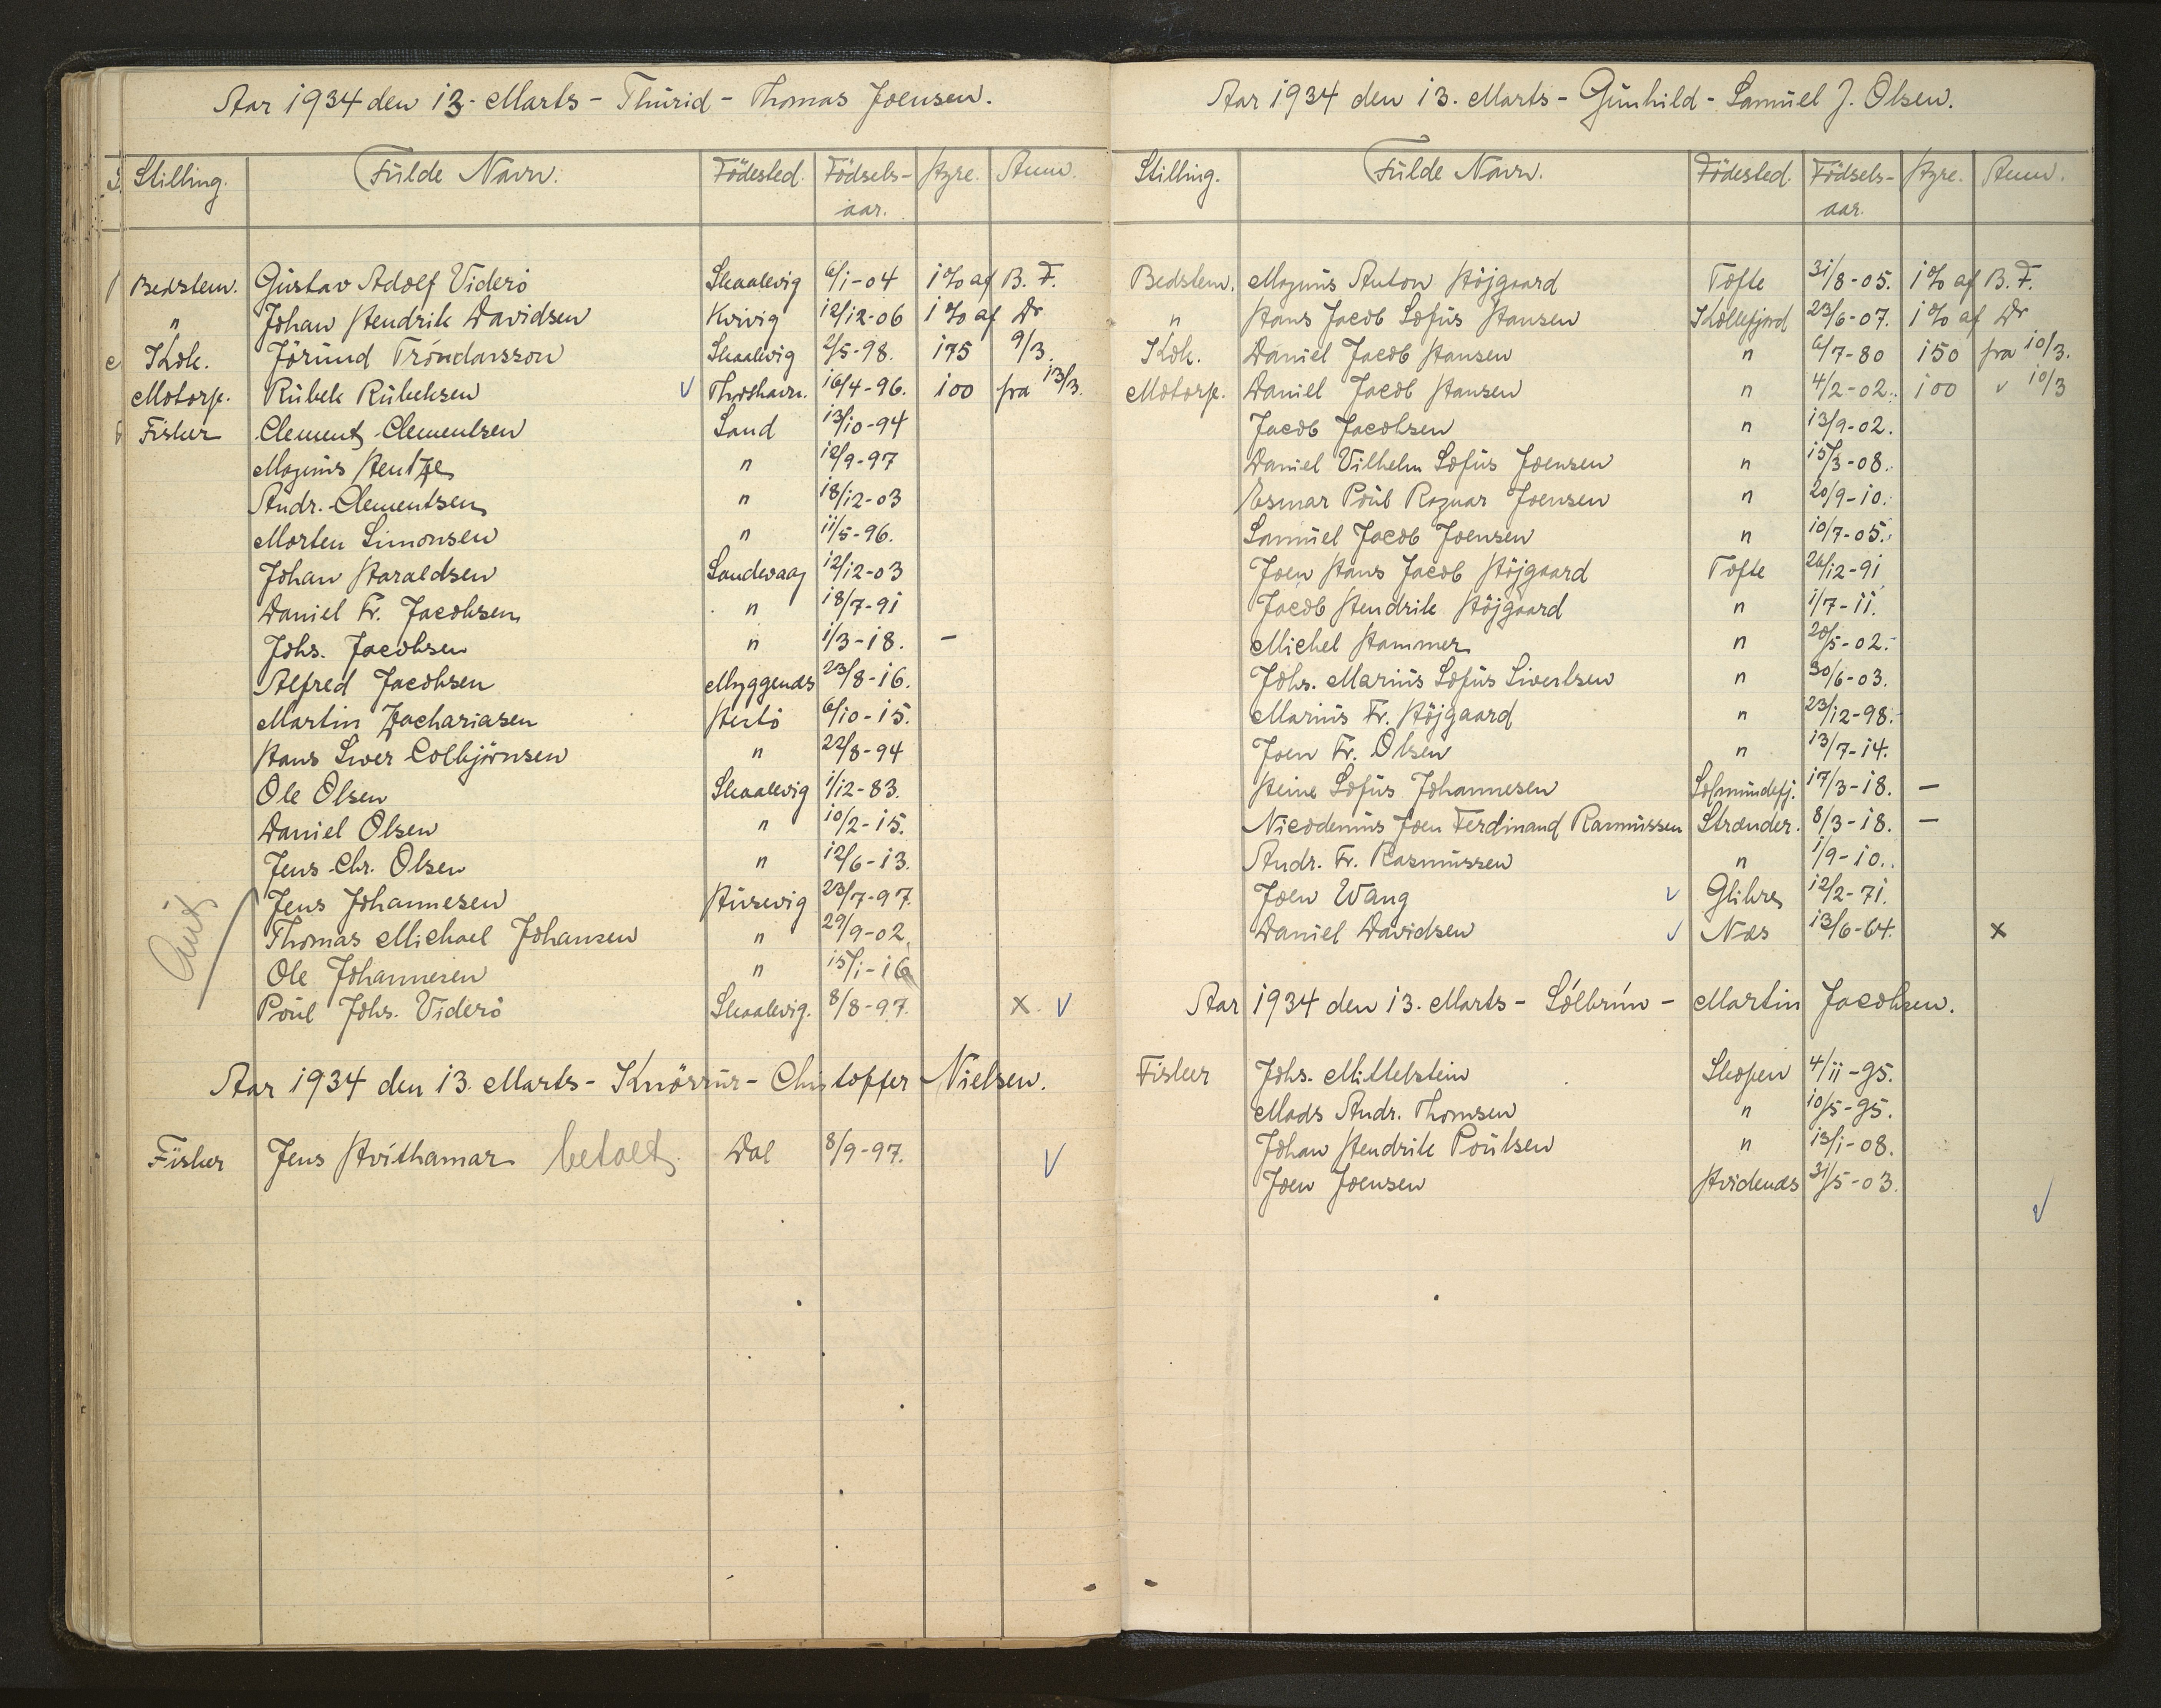 Aar 1934 den 13. Marts - Thúrid - Thomas Joensen.
Stilling. Fúlde Navn. Födested. Födsels- Hyre. Anm.
aar.
Bedstem. Gústav Adolf Viderö Skaalevig 6/1-04 1% af B. F.
" Johan Hendrik Davidsen Kvivig 12/12-06 1% af Dr
Kok. Jörúnd Tróndarsson Skaalevig 2/5-98. 175 9/3.
Motorp. Rúbek Rúbeksen v Thorshavn. 16/4-96. 100 fra 13/3.
Fisker Clement Clementsen Sand 13/10-94
Magnús Hentze " 12/9-97
Andr. Clementsen " 18/12-03
Morten Simonsen " 11/5-96.
Johan Haraldsen Sandevaag 12/12-03
Daniel Fr. Jacobsen " 18/7-91
Johs. Jacobsen " 1/3-18. -
Alfred Jacobsen Myggenæs 23/8-16.
Martin Zachariasen Hestö 6/10-15.
Hans Siver Colbjörnsen " 22/8-94
Ole Olsen Skaalevig 1/12-83.
Daniel Olsen " 10/2-15.
Jens Chr. Olsen " 12/6-13.
Jens Johannesen Húsevig 23/7-97.
Thomas Michael Johansen " 29/9-02.
Ole Johannesen " 15/1-16
Póúl Johs. Viderö Skaalevig. 8/8-97. x v
Aar 1934 den 13. Marts - Knörrúr - Chistoffer Nielsen.
Fisker Jens Hvithamar betalt Dal 8/9-97. v
Aar 1934 den 13. Marts - Gúnhild - Samúel J. Olsen.
Stilling. Fúlde Navn. Födested. Födsels- Hyre. Anm.
aar.
Bedstem. Magnús Anton Höjgaard Tofte 31/8-05. 1% af B. F.
" Hans Jacob Sofús Hansen Kollefjord 23/6-07. 1% af Dr
Kok. Daniel Jacob Hansen " 6/7-80 150 fra 10/3.
Motorp. Daniel Jacob Hansen " 4/2-02. 100 " 10/3
Jacob Jacobsen " 13/9-02.
Daniel Vilhelm Sofús Joensen " 15/3-08.
Esmar Póúl Ragnar Joensen " 20/9-10.
Samúel Jacob Joensen " 10/7-05.
Joen Hans Jacob Höjgaard Tofte 26/12-91
Jacob Hendrik Höjgaard " 1/7-11.
Michel Hammer " 20/5-02.
Johs. Mariús Sofús Sivertsen " 30/6-03.
Mariús Fr. Höjgaard " 23/12-98.
Joen Fr. Olsen " 13/7-14.
Heine Sofús Johannesen Solmúndefj. 17/3-18. -
Nicodemús Joen Ferdinand Rasmússen Strænder. 8/3-18. -
Andr. Fr. Rasmússen " 1/9-10.
Joen Wang v Glibre 12/2-71.
Daniel Davidsen v Næs 13/6-64. x
Aar 1934 den 13. Marts - Sólbrún - Martin Jacobsen.
Fisker Johs. Mittelstein Skopen 4/11-95.
Mads Andr. Thomsen " 10/5-95.
Johan Hendrik Poúlsen " 13/1-08.
Joen Joensen Hvidenæs 31/5-03.
v